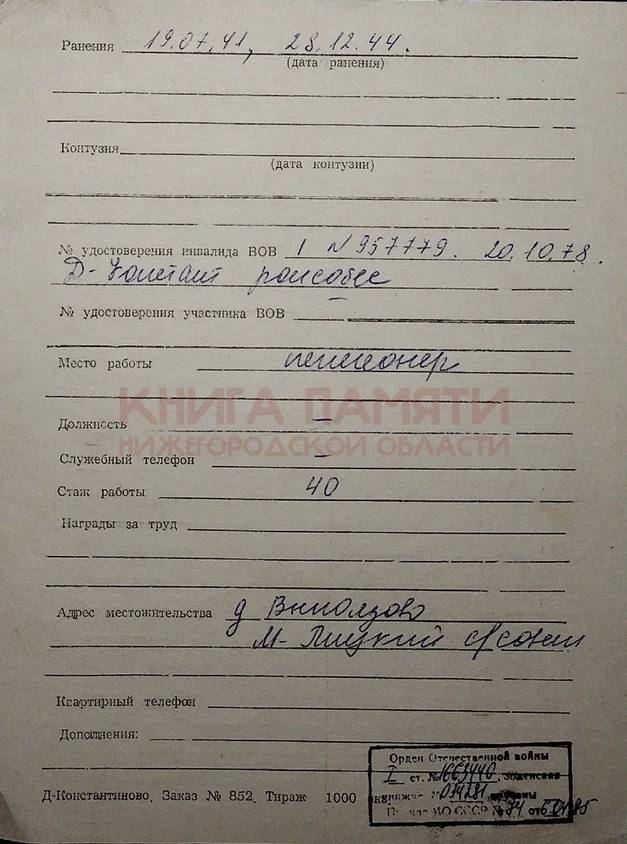 Ранения 19.07.41, 28.12.44.
(дата ранения)
Контузия
(дата контузии)
№ удостоверения инвалида ВОВ 1 N 957779. 20.10.78.
Д-Констант райсобес
№ удостоверения участника ВОВ —
Место работы пенсионер
КНИГА ПАМЯТИ
Должность —
НИЖЕГОРОДСКОЙ ОБЛАСТИ
Служебный телефон —
Стаж работы 40
Награды за труд
Адрес местожительства д
М-Пицкий с/совет
Квартирный телефон
Дополнения:
Орден Отечественной войны
I ст. №
Д-Константиново, Заказ № 852. Тираж 1000
МО СССР №